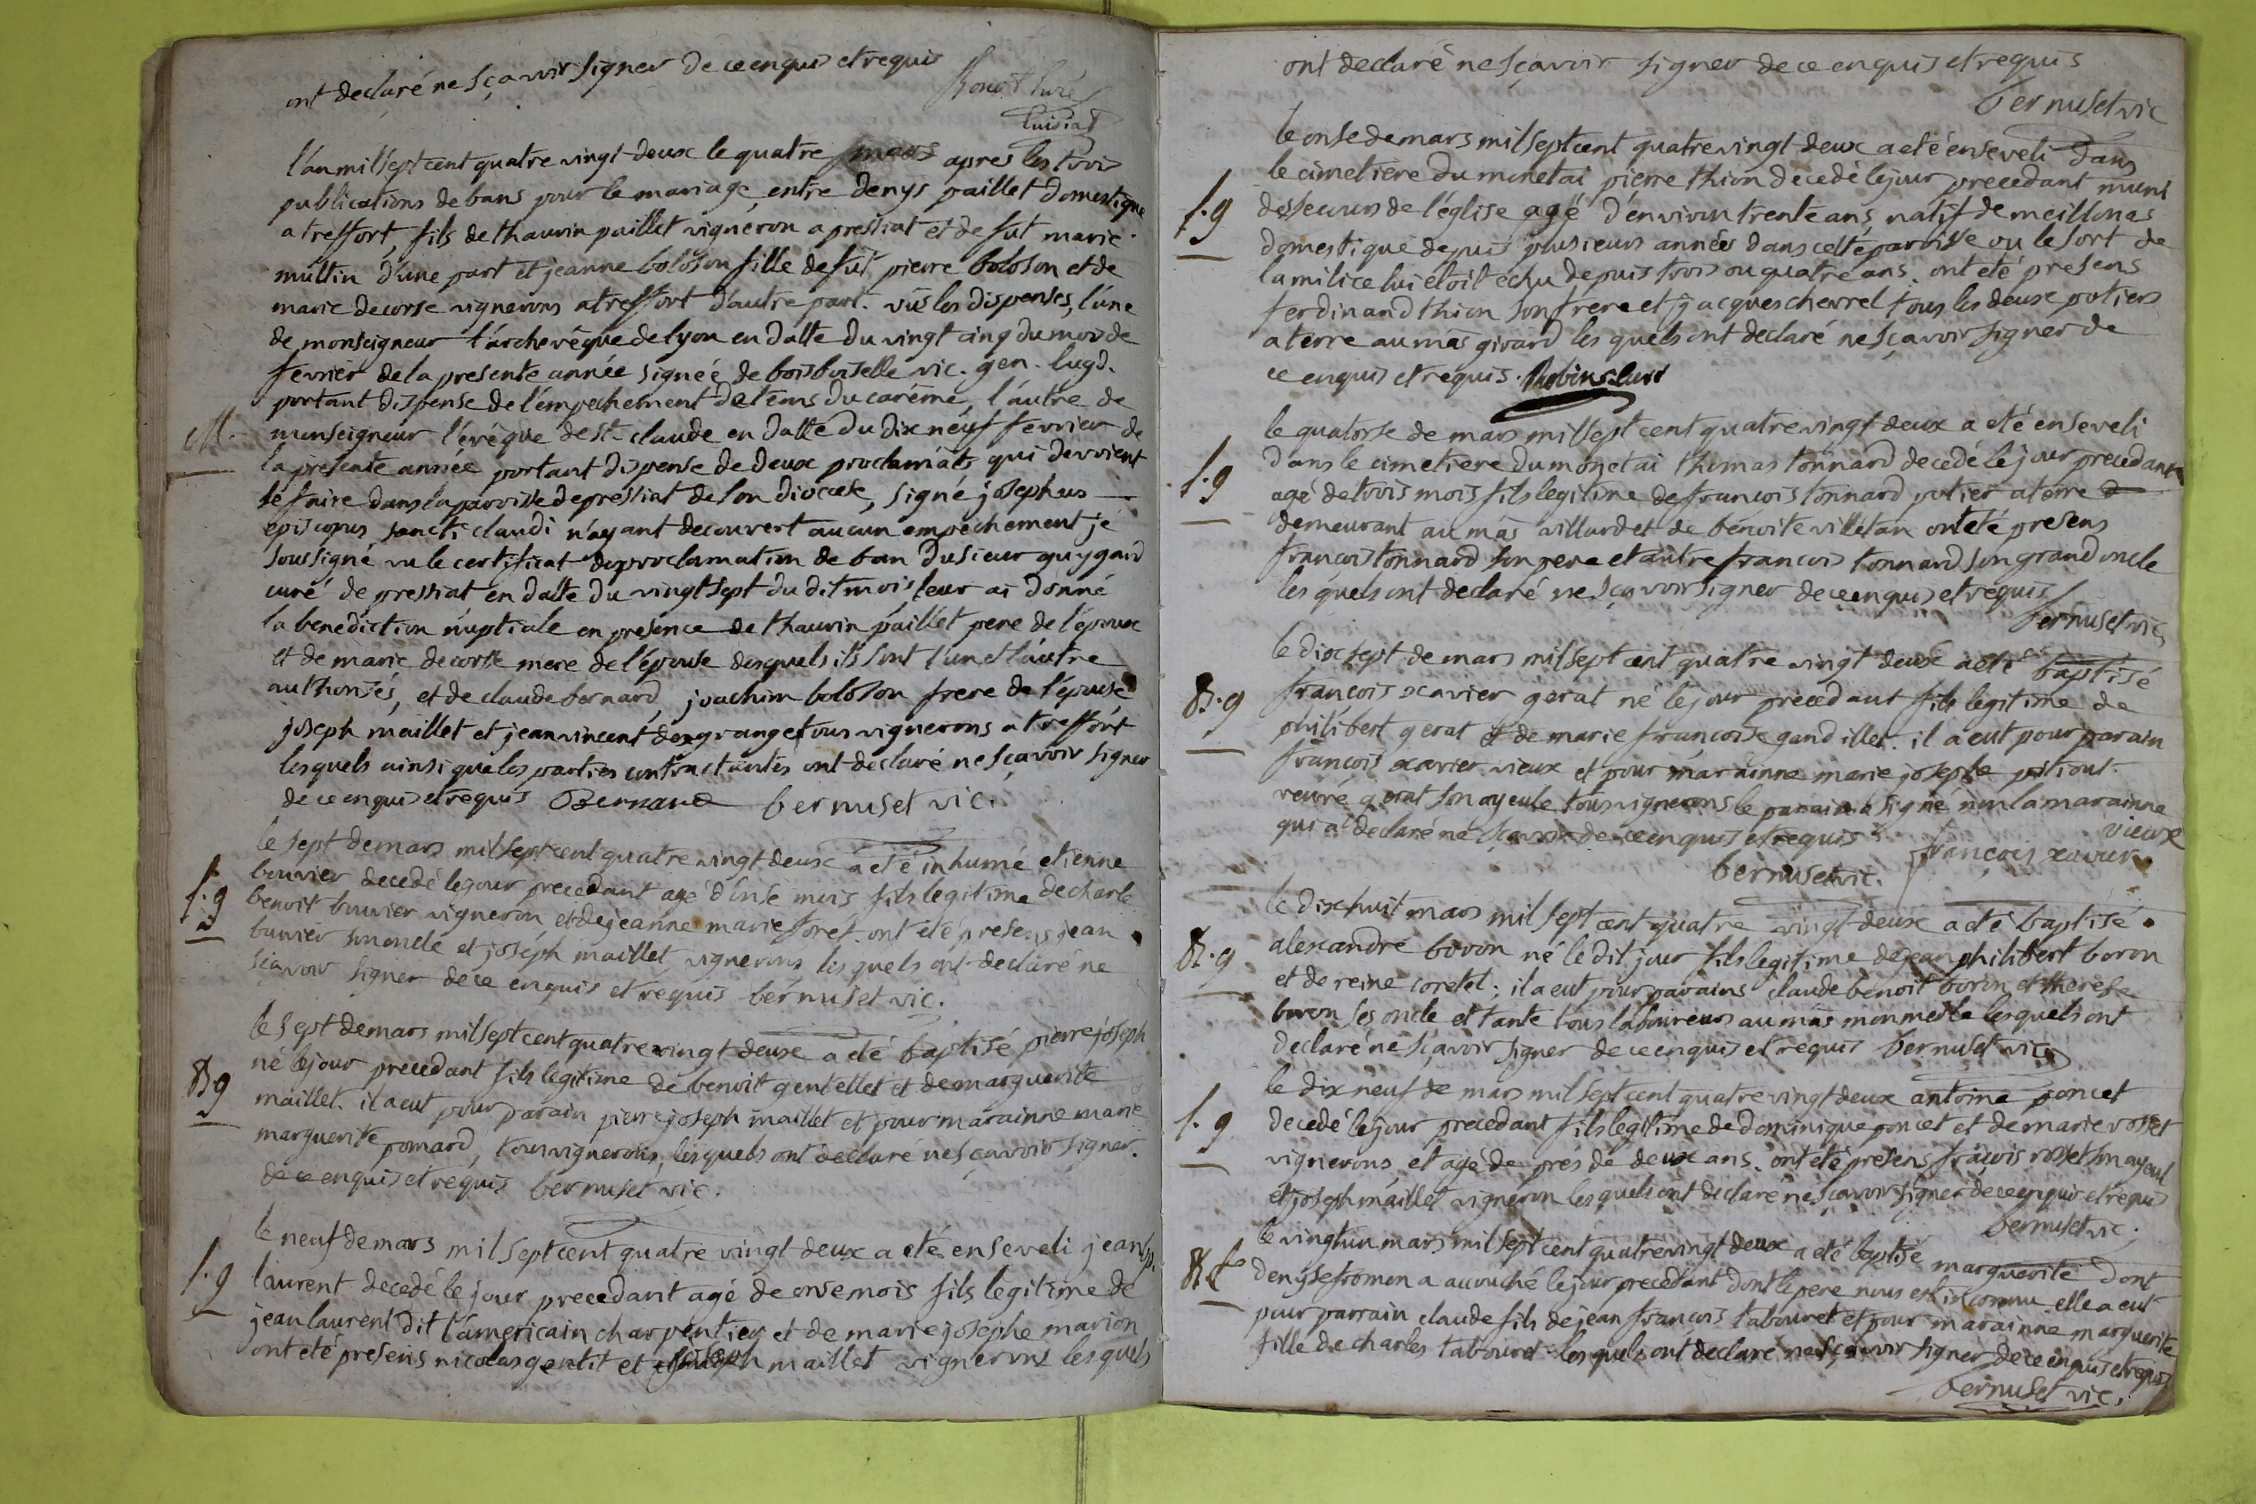 ont declaré ne sçavoir signer de ce enquis et requis
l'an mil sept cent quatre vingt deux le quatre mars apres les trois
publications de bans pour le mariage entre denys paillet domestique
a treffort, fils de thaurin paillet vigneron a pressiat et de fut marie
multin d'une part et jeanne boloson fille de fut pierre boloson et de
marie decorse vignerons a treffort d'autre part. vûs les dispenses, l'une
de monseigneur l'archevêque de lyon en datte du vingt cinq du mois de
fevrier de la presente année signée de boisboiselle vic. gen. lugd.
portant dispense de l'empechement de tems du carême, l'autre de
M.
monseigneur l'évêque de st claude en datte du dix neuf fevrier de
la presente année portant dispense de deux proclamats qui devroient
se faire dans la paroisse de pressiat de son diocese, signé josephus
episcopus sancti claudi n'ayant decouvert aucun empechement je
soussigné vu le certificat de proclamation de ban du sieur guygard
curé de pressiat en datte du vingt sept du dit mois leur ai donné
la benediction nuptiale en presence de thaurin paillet pere de l'epoux
et de marie decorse mere de l'épouse desquels ils sont l'un et l'autre
authorisés, et de claude bernard, joachim boloson frere de l'épouse
joseph maillet et jean vincent desgranges tous vignerons a treffort
lesquels ainsi que les parties contractantes ont declaré ne sçavoir signer
de ce enquis et requis Bernard bernuset vic.
le sept de mars mil sept cent quatre vingt deux a eté inhumé etienne
bouvier decedé le jour precedant agé d'onse mois fils legitime de charle
S. g
benoit bouvier vigneron et de jeanne marie foret. ont eté presens jean
bouvier son oncle et joseph maillet vignerons lesquels ont declaré ne
sçavoir signer de ce enquis et requis bernuset vic.
le sept de mars mil sept cent quatre vingt deux a eté baptisé pierre joseph
né le jour precedant fils legitime de benoit gentellet et de marguerite
B g
maillet. il a eut pour parain pierre joseph maillet et pour marainne marie
marguerite pomard, tous vignerons, lesquels ont declaré ne sçavoir signer
de ce enquis et requis bernuset vic.
le neuf de mars mil sept cent quatre vingt deux a eté enseveli jean
S. g
laurent decedé le jour precedant agé de onse mois fils legitime de
jean laurent dit l'americain charpentier et de marie josephe marion
ont eté presens nicolas gentit et joseph maillet vignerons lesquels
ont declaré ne sçavoir signer de ce enquis et requis
bernuset vic
le onse de mars mil sept cent quatre vingt deux a eté enseveli dans
le cimetiere du monetai pierre thion decedé le jour precedant muni
S. g
des secours de l'église agé d'environ trente ans, natif de meillonas
domestique depuis plusieurs années dans cette paroisse ou le sort de
la milice lui etoit echu depuis trois ou quatre ans. ont eté presens
ferdinand thion son frere et jacques cherrel tous les deux potiers
a terre au mas girard lesquels ont declaré ne sçavoir signer de
ce enquis et requis. Robin curé
le quatorse de mars mil sept cent quatre vingt deux a eté enseveli
S. g
dans le cimetiere du monetai thomas tonnard decedé le jour precedant
agé de trois mois fils legitime de françois tonnard potier a terre
demeurant au mas villardet de benoite villetan ont eté presens
françois tonnard son pere et autre françois tonnard son grand oncle
lesquels ont declaré ne sçavoir signer de ce enquis et requis
bernuset vic
le dix sept de mars mil sept cent quatre vingt deux a eté baptisé
B. g
françois xavier gerat né le jour precedant fils legitime de
philibert gerat et de marie françoise gandillet. il a eut pour parain
françois xavier vieux et pour marainne marie josephe pitiout
veuve gerat son ayeule tous vignerons le parain a signé non la marainne
qui a declaré ne sçavoir de ce enquis et requis
vieux
bernuset vic. françois xavier
le dix huit mars mil sept cent quatre vingt deux a eté baptisé
B. g
alexandre boron né le dit jour fils legitime de jean philibert boron
et de reine coretet; il a eut pour parains claude benoit boron et therese
boron ses oncle et tante tous laboureurs au mas monmerle lesquels ont
declaré ne sçavoir signer de ce enquis et requis bernuset vic
le dix neuf de mars mil sept cent quatre vingt deux antoine poncet
S. g
decedé le jour precedant fils legitime de dominique poncet et de marie rosset
vignerons et agé de près de deux ans. ont eté presens françois rosset son ayeul
et joseph maillet vigneron lesquels ont declaré ne sçavoir signer de ce enquis et requis
bernuset vic.
le vingt un mars mil sept cent quatre vingt deux a eté baptisé marguerite dont
B f
denyse fromon a accouché le jour precedant dont le pere nous est inconnu. elle a eut
pour parrain claude fils de jean françois tabouret et pour marainne marguerite
fille de charles tabouret lesquels ont declaré ne sçavoir signer de ce enquis et requis
bernuset vic.